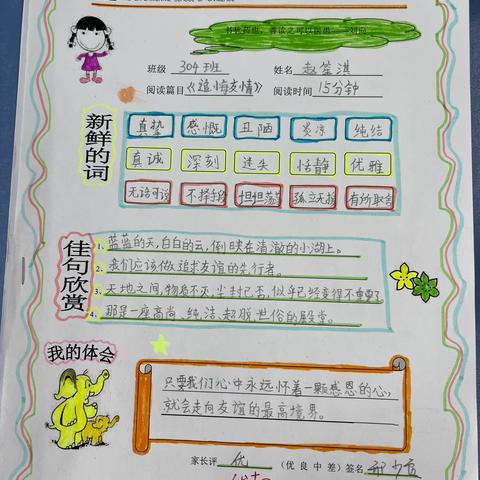 书犹药也，善读之可以医愚——刘向
班级 304班 姓名 赵笙淇
阅读篇目《追悔友情》 阅读时间 15分钟
新鲜的词
真挚 感慨 丑陋 炎凉 纯结
真诚 深刻 迷失 恬静 优雅
无话可说 不择手段 坦坦荡荡 孤立无援 有所取舍
佳句欣赏
1、蓝蓝的天，白白的云，倒映在清澈的小湖上。
2、我们应该做追求友谊的先行者。
3、天地之间，物是否灭，尘封已否，似乎已经变得不重要了
4、那是一座高尚、纯洁、超脱世俗的殿堂。
我的体会
只要我们心中永远怀着一颗感恩的心，
就会走向友谊的最高境界。
家长评 优 （优 良 中 差）签名